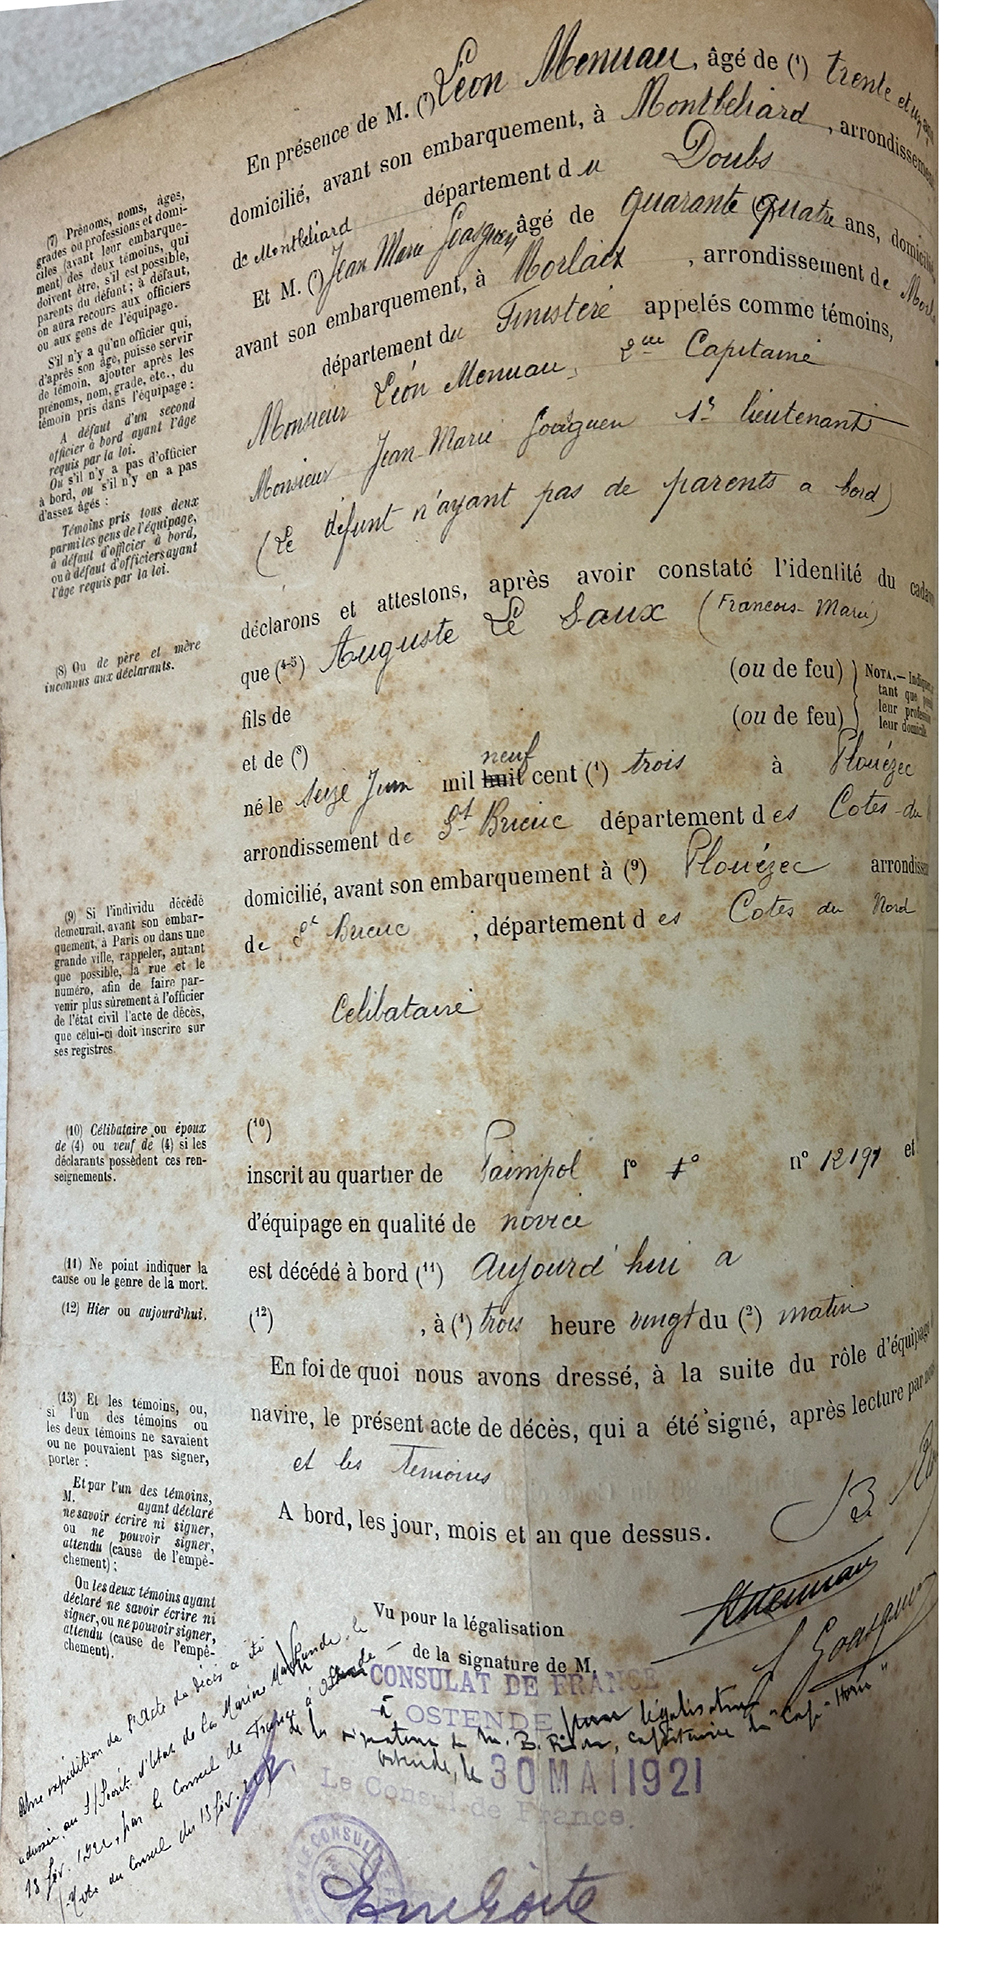 En présence de M. (7) Léon Menuau, âgé de (1) trente et un ans
domicilié, avant son embarquement, à Montbéliard, arrondissement
de Montbéliard département du Doubs
Et M. (7) Jean Marie Goasguen âgé de quarante quatre ans, domicilié
avant son embarquement, à Morlaix, arrondissement de Morl
département du Finistère appelés comme témoins,
Monsieur Léon Menuau, 2me Capitaine
Monsieur Jean-Marie Goasguen 1r lieutenant
(Le défunt n'ayant pas de parents a bord)
déclarons et attestons, après avoir constaté l'identité du cadav
que (4-5) Auguste Le Saux (Francois-Marie)
fils de (ou de feu)
et de (8) (ou de feu)
NOTA. — Indiquer
tant que
leur profes
leur domicile
né le seize Juin mil huit neuf cent (1) trois à Plouézec
arrondissement de St Brieuc département des Cotes-du
domicilié, avant son embarquement à (9) Plouézec arrondissem
de St Brieuc, département des Cotes du Nord
Celibataire
(10)
inscrit au quartier de Paimpol fo n° 12191 et
d'équipage en qualité de novice
est décédé à bord (11) Aujourd'hui a
(12) , à (1) trois heure vingt du (2) matin
En foi de quoi nous avons dressé, à la suite du rôle d'équipage
navire, le présent acte de décès, qui a été signé, après lecture par nous
et les Temoins
A bord, les jour, mois et an que dessus.
B.
Menuau
J Goasguen
Vu pour la légalisation
de la signature de M.
CONSULAT DE FRANCE
à
OSTENDE
pour légalisation
de la signature de M. B. , capitaine du "Cap Horn"
Ostende, le 30 MAI 1921
Le Consul de France.
(7) Prénoms, noms, âges,
grades ou professions et domi-
ciles (avant leur embarque-
ment) des deux témoins, qui
doivent être, s'il est possible,
parents du défunt ; à défaut,
on aura recours aux officiers
ou aux gens de l'équipage.
S'il n'y a qu'un officier qui,
d'après son âge, puisse servir
de témoin, ajouter après les
prénoms, nom, grade, etc., du
témoin pris dans l'équipage :
A défaut d'un second
officier à bord ayant l'âge
requis par la loi.
Ou s'il n'y a pas d'officier
à bord, ou s'il n'y en a pas
d'assez âgés :
Témoins pris tous deux
parmi les gens de l'équipage,
à défaut d'officier à bord,
ou à défaut d'officiers ayant
l'âge requis par la loi.
(8) Ou de père et mère
inconnus aux déclarants.
(9) Si l'individu décédé
demeurait, avant son embar-
quement, à Paris ou dans une
grande ville, rappeler, autant
que possible, la rue et le
numéro, afin de faire par-
venir plus sûrement à l'officier
de l'état civil l'acte de décès,
que celui-ci doit inscrire sur
ses registres
(10) Célibataire ou époux
de (4) ou veuf de (4) si les
déclarants possèdent ces ren-
seignements.
(11) Ne point indiquer la
cause ou le genre de la mort.
(12) Hier ou aujourd'hui.
(13) Et les témoins, ou,
si l'un des témoins ou
les deux témoins ne savaient
ou ne pouvaient pas signer,
porter :
Et par l'un des témoins,
M. ayant déclaré
ne savoir écrire ni signer,
ou ne pouvoir signer,
attendu (cause de l'empê-
chement) ;
Ou les deux témoins ayant
déclaré ne savoir écrire ni
signer, ou ne pouvoir signer,
attendu (cause de l'empê-
chement).
Une expédition de l'Acte de décès a été
adressée au S/Secrét. d'Etat de la Marine Marchande, le
13 fév. 1922, par le Consul de France à Ostende
(Note du Consul du 13 fév. 1922)